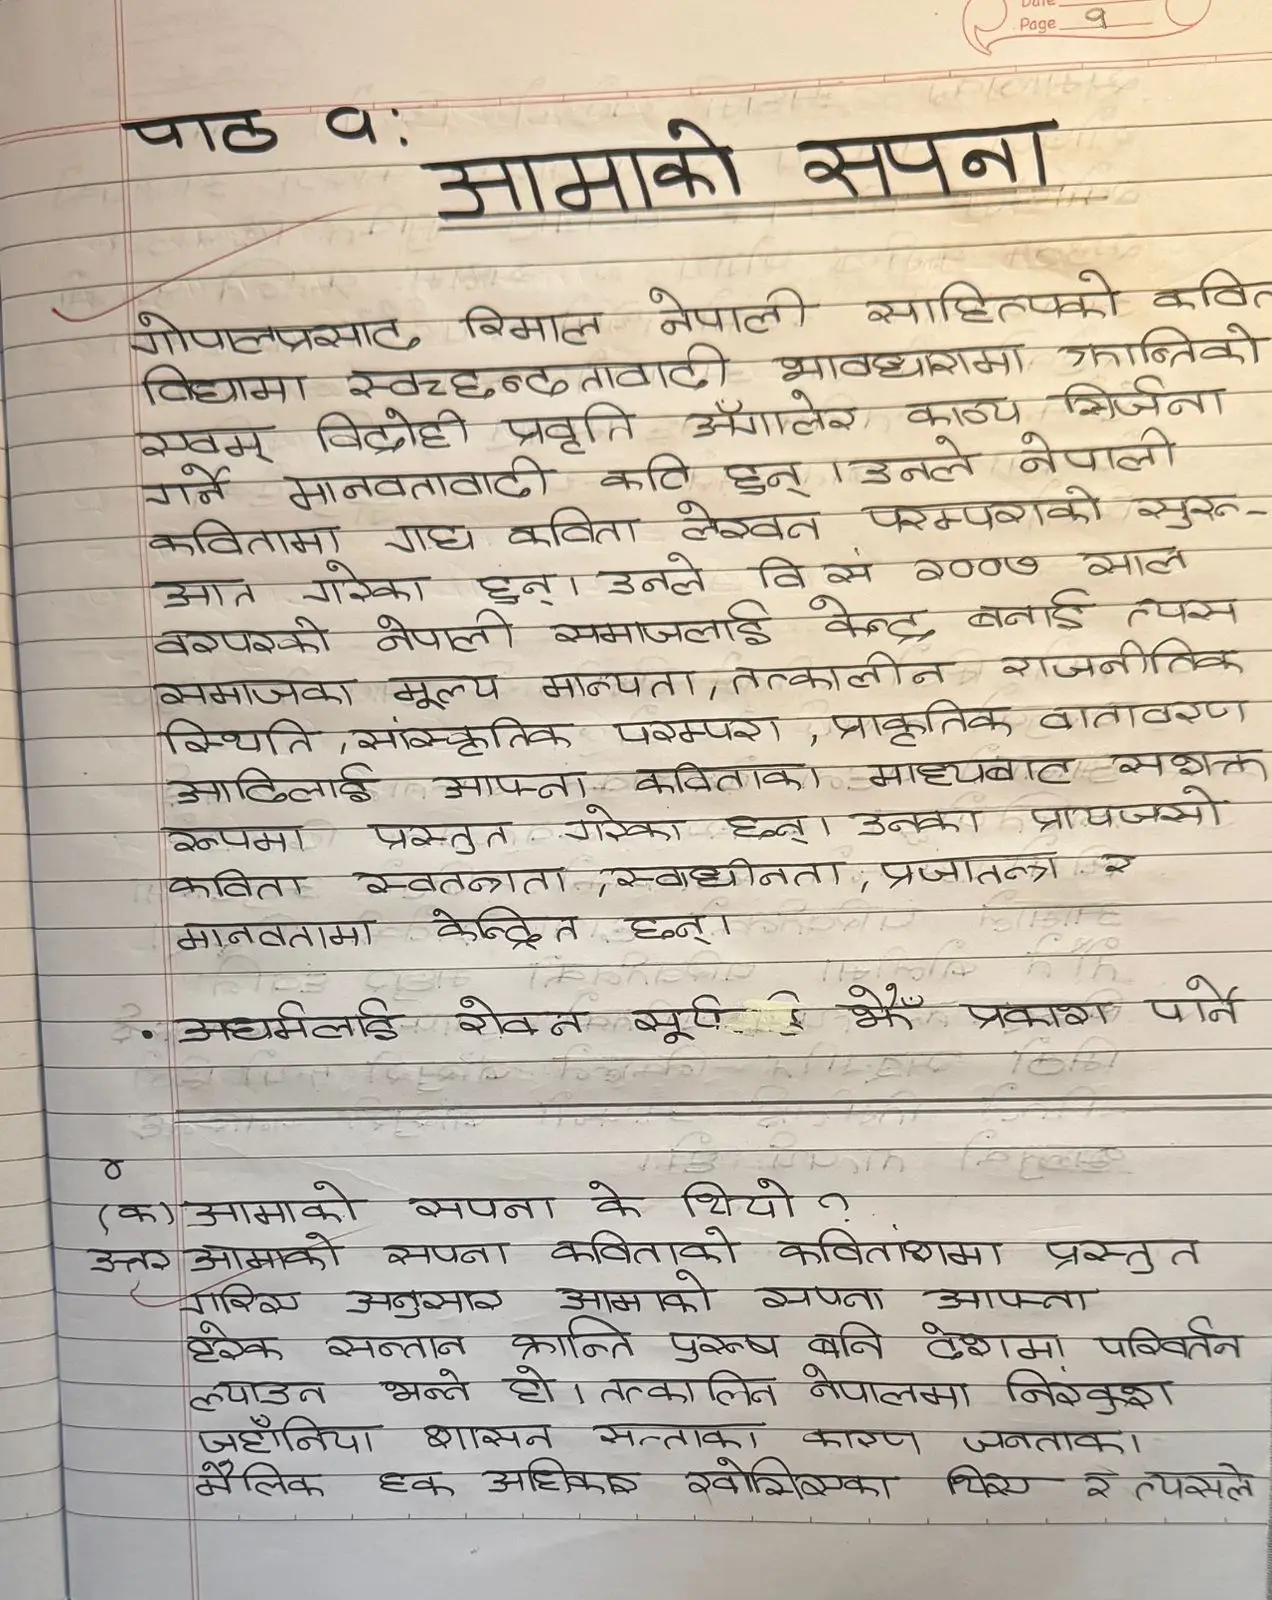 Date
Page १
पाठ १:
आमाको सपना
गोपालप्रसाद रिमाल नेपाली साहित्यको कवित
विधामा स्वच्छन्दतावादी भावधारामा क्रान्तिको
एवम् विद्रोही प्रवृति अँगालेर काव्य सिर्जना
गर्ने मानवतावादी कवि हुन् । उनले नेपाली
कवितामा गद्य कविता लेखन परम्पराको सुरु-
आत गरेका हुन् । उनले वि सं २००७ साल
वरपरको नेपाली समाजलाई केन्द्र बनाई त्यस
समाजका मूल्य मान्यता, तत्कालीन राजनीतिक
स्थिति, सांस्कृतिक परम्परा, प्राकृतिक वातावरण
आदिलाई आफ्ना कविताका माध्यबाट सशक्त
रूपमा प्रस्तुत गरेका छन् । उनका प्रायजसो
कविता स्वतन्त्रता, स्वाधीनता, प्रजातन्त्र र
मानवतामा केन्द्रित छन् ।
• अधर्मलाई रोक्न सूर्य झैँ प्रकाश पार्ने
४
(क) आमाको सपना के थियो ?
उत्तर आमाको सपना कविताको कवितांशमा प्रस्तुत
गरिए अनुसार आमाको सपना आफ्ना
हरेक सन्तान क्रान्ति पुरुष बनि देशमा परिवर्तन
ल्याउन भन्ने हो । तत्कालिन नेपालमा निरंकुश
जहाँनिया शासन सत्ताका कारण जनताका
मैलिक हक अधिकार खोसिएका थिए र त्यसले